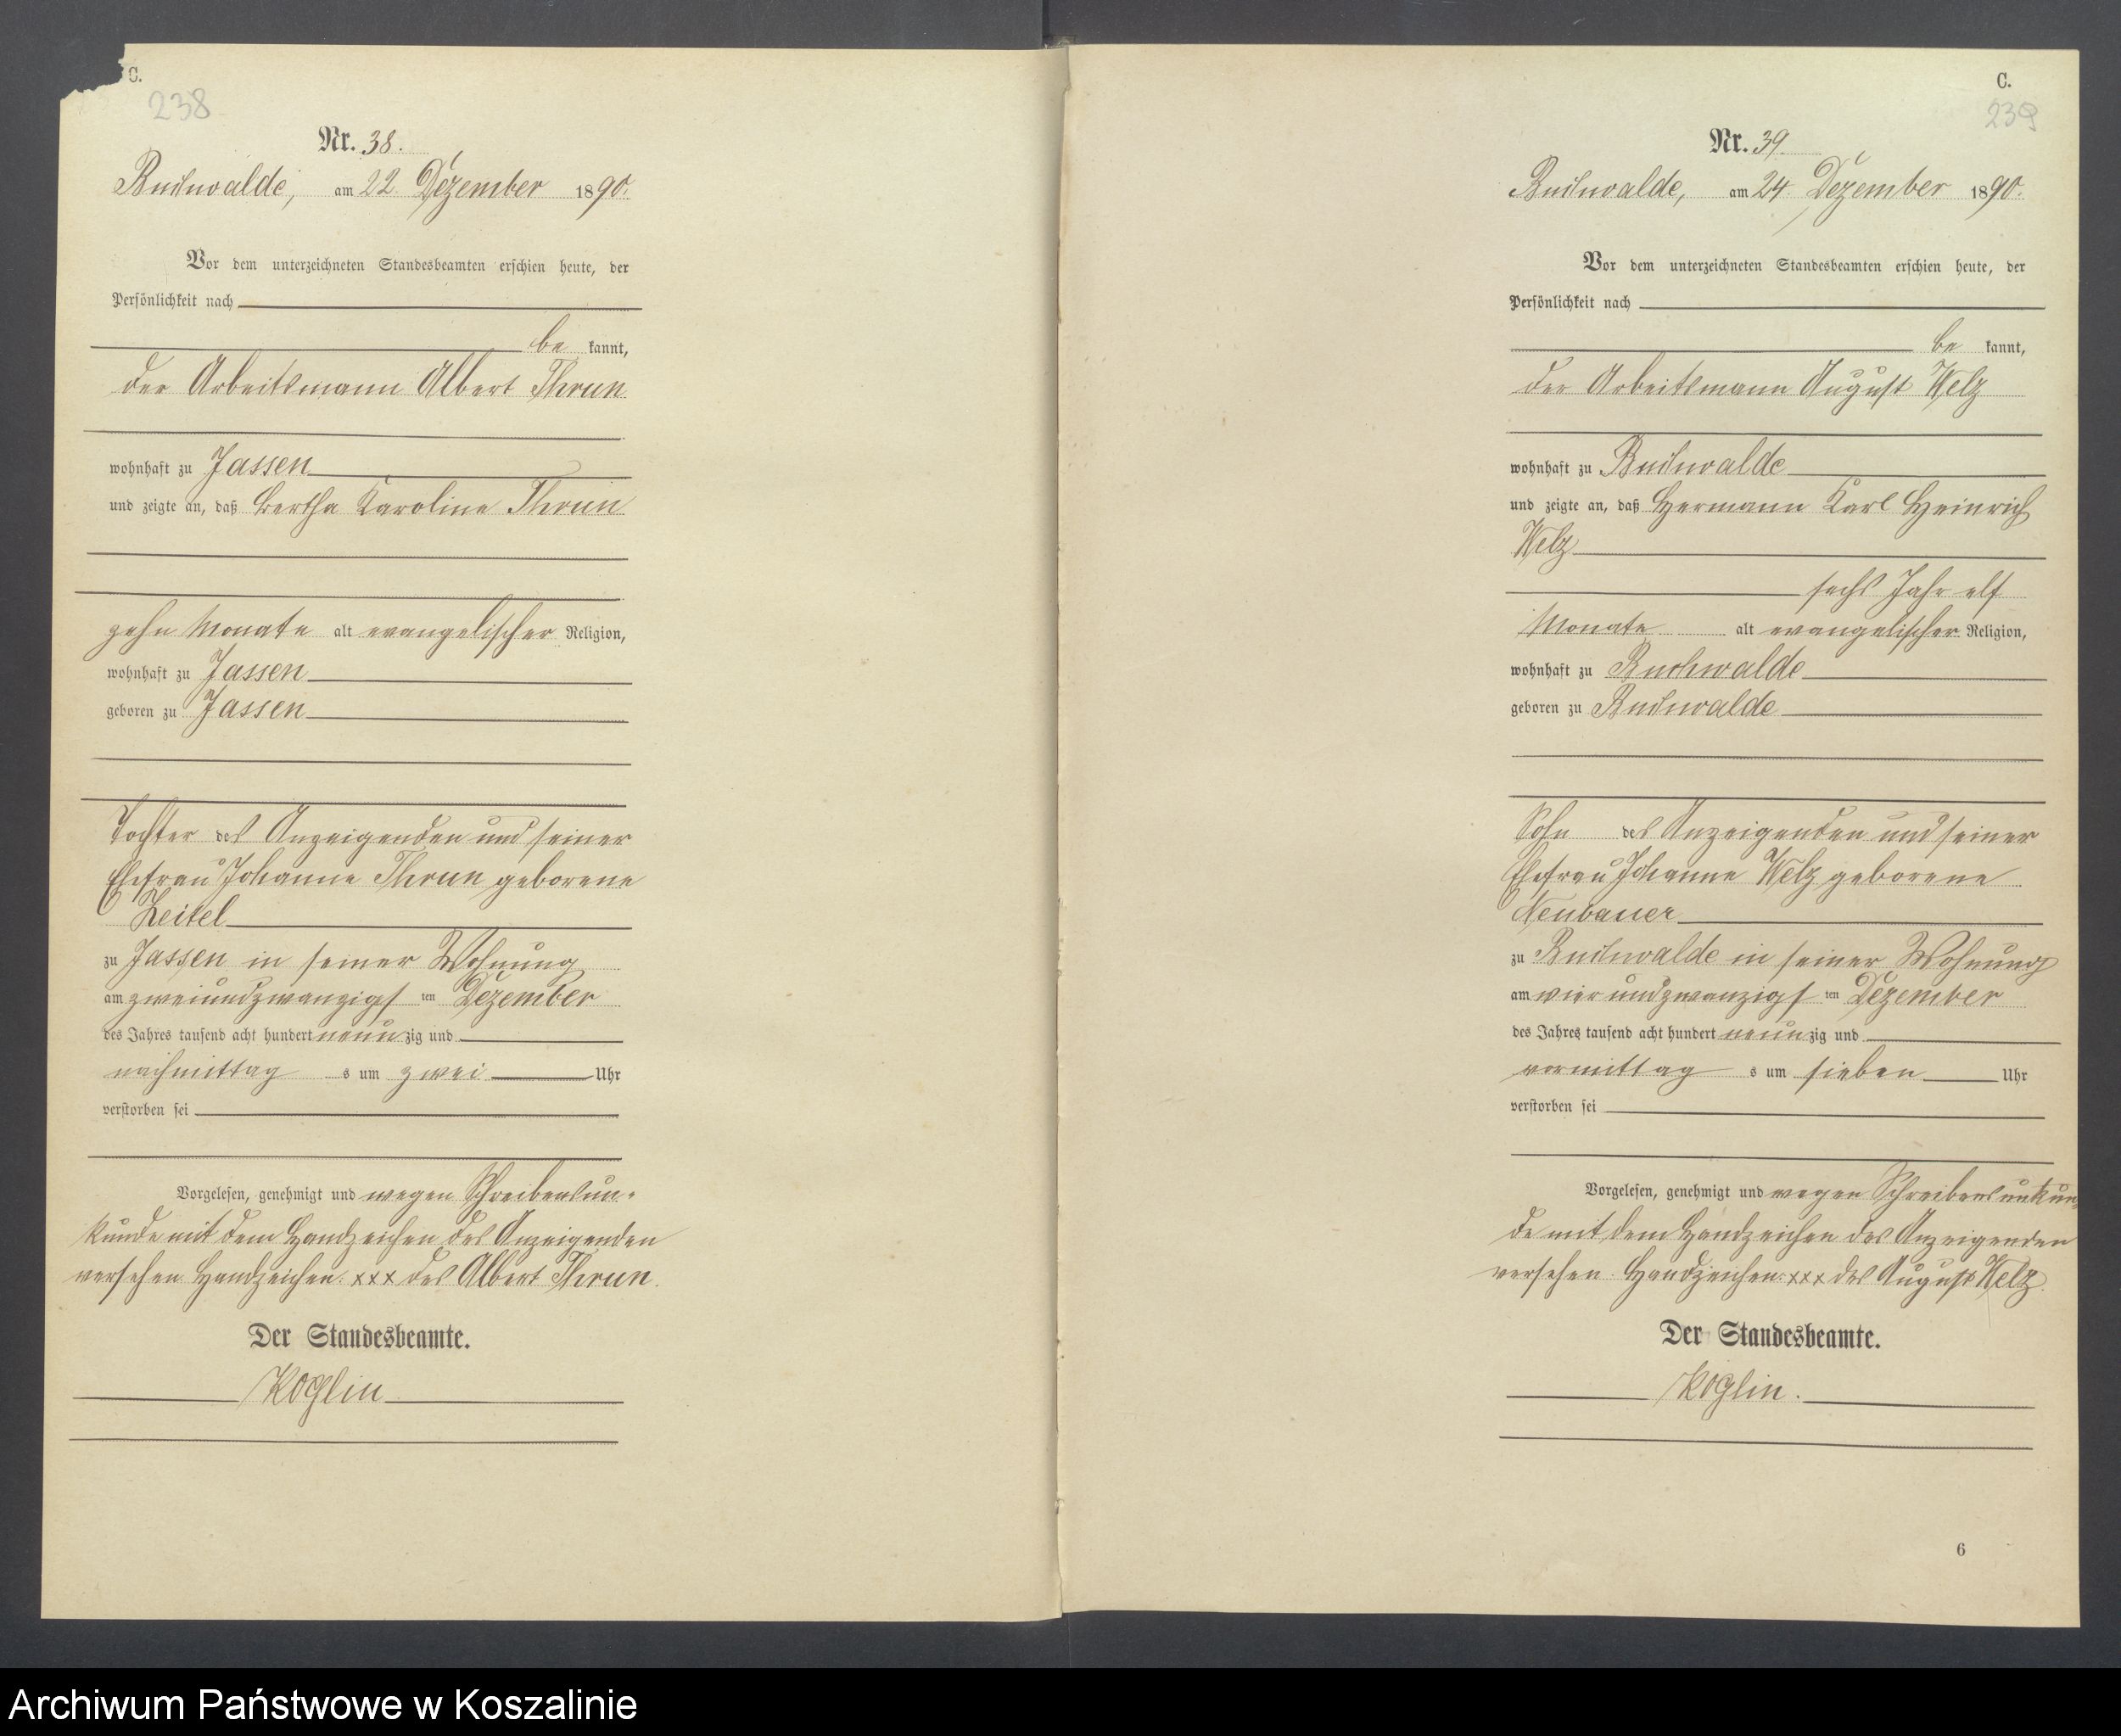 C.
238
Nr. 38.
Buchwalde, am 22. Dezember 1890.
Vor dem unterzeichneten Standesbeamten erschien heute, der
Persönlichkeit nach
be kannt,
der Arbeitsmann Albert Thrun
wohnhaft zu Jassen
und zeigte an, daß Bertha Karoline Thrun
zehn Monate alt evangelischer Religion,
wohnhaft zu Jassen
geboren zu Jassen
Tochter des Anzeigenden und seiner
Ehefrau Johanne Thrun geborene
Zeitel
zu Jassen in seiner Wohnung
am zweiundzwanzigsten Dezember
des Jahres tausend acht hundert neunzig und
nachmittags um zwei Uhr
verstorben sei
Vorgelesen, genehmigt und wegen Schreibensun-
kunde mit dem Handzeichen des Anzeigenden
versehen Handzeichen: xxx des Albert Thrun.
Der Standesbeamte.
Koglin
C.
239
Nr. 39.
Buchwalde, am 24. Dezember 1890.
Vor dem unterzeichneten Standesbeamten erschien heute, der
Persönlichkeit nach
be kannt,
der Arbeitsmann August Welz
wohnhaft zu Buchwalde
und zeigte an, daß Hermann Karl Heinrich
Welz
sechs Jahr elf
Monate alt evangelischer Religion,
wohnhaft zu Buchwalde
geboren zu Buchwalde
Sohn des Anzeigenden und seiner
Ehefrau Johanne Welz geborene
Neubauer
zu Buchwalde in seiner Wohnung
am vierundzwanzigsten Dezember
des Jahres tausend acht hundert neunzig und
vormittags um sieben Uhr
verstorben sei
Vorgelesen, genehmigt und wegen Schreibensunkun-
de mit dem Handzeichen des Anzeigenden
versehen. Handzeichen: xxx des August Welz.
Der Standesbeamte.
Koglin.
6
Archiwum Państwowe w Koszalinie